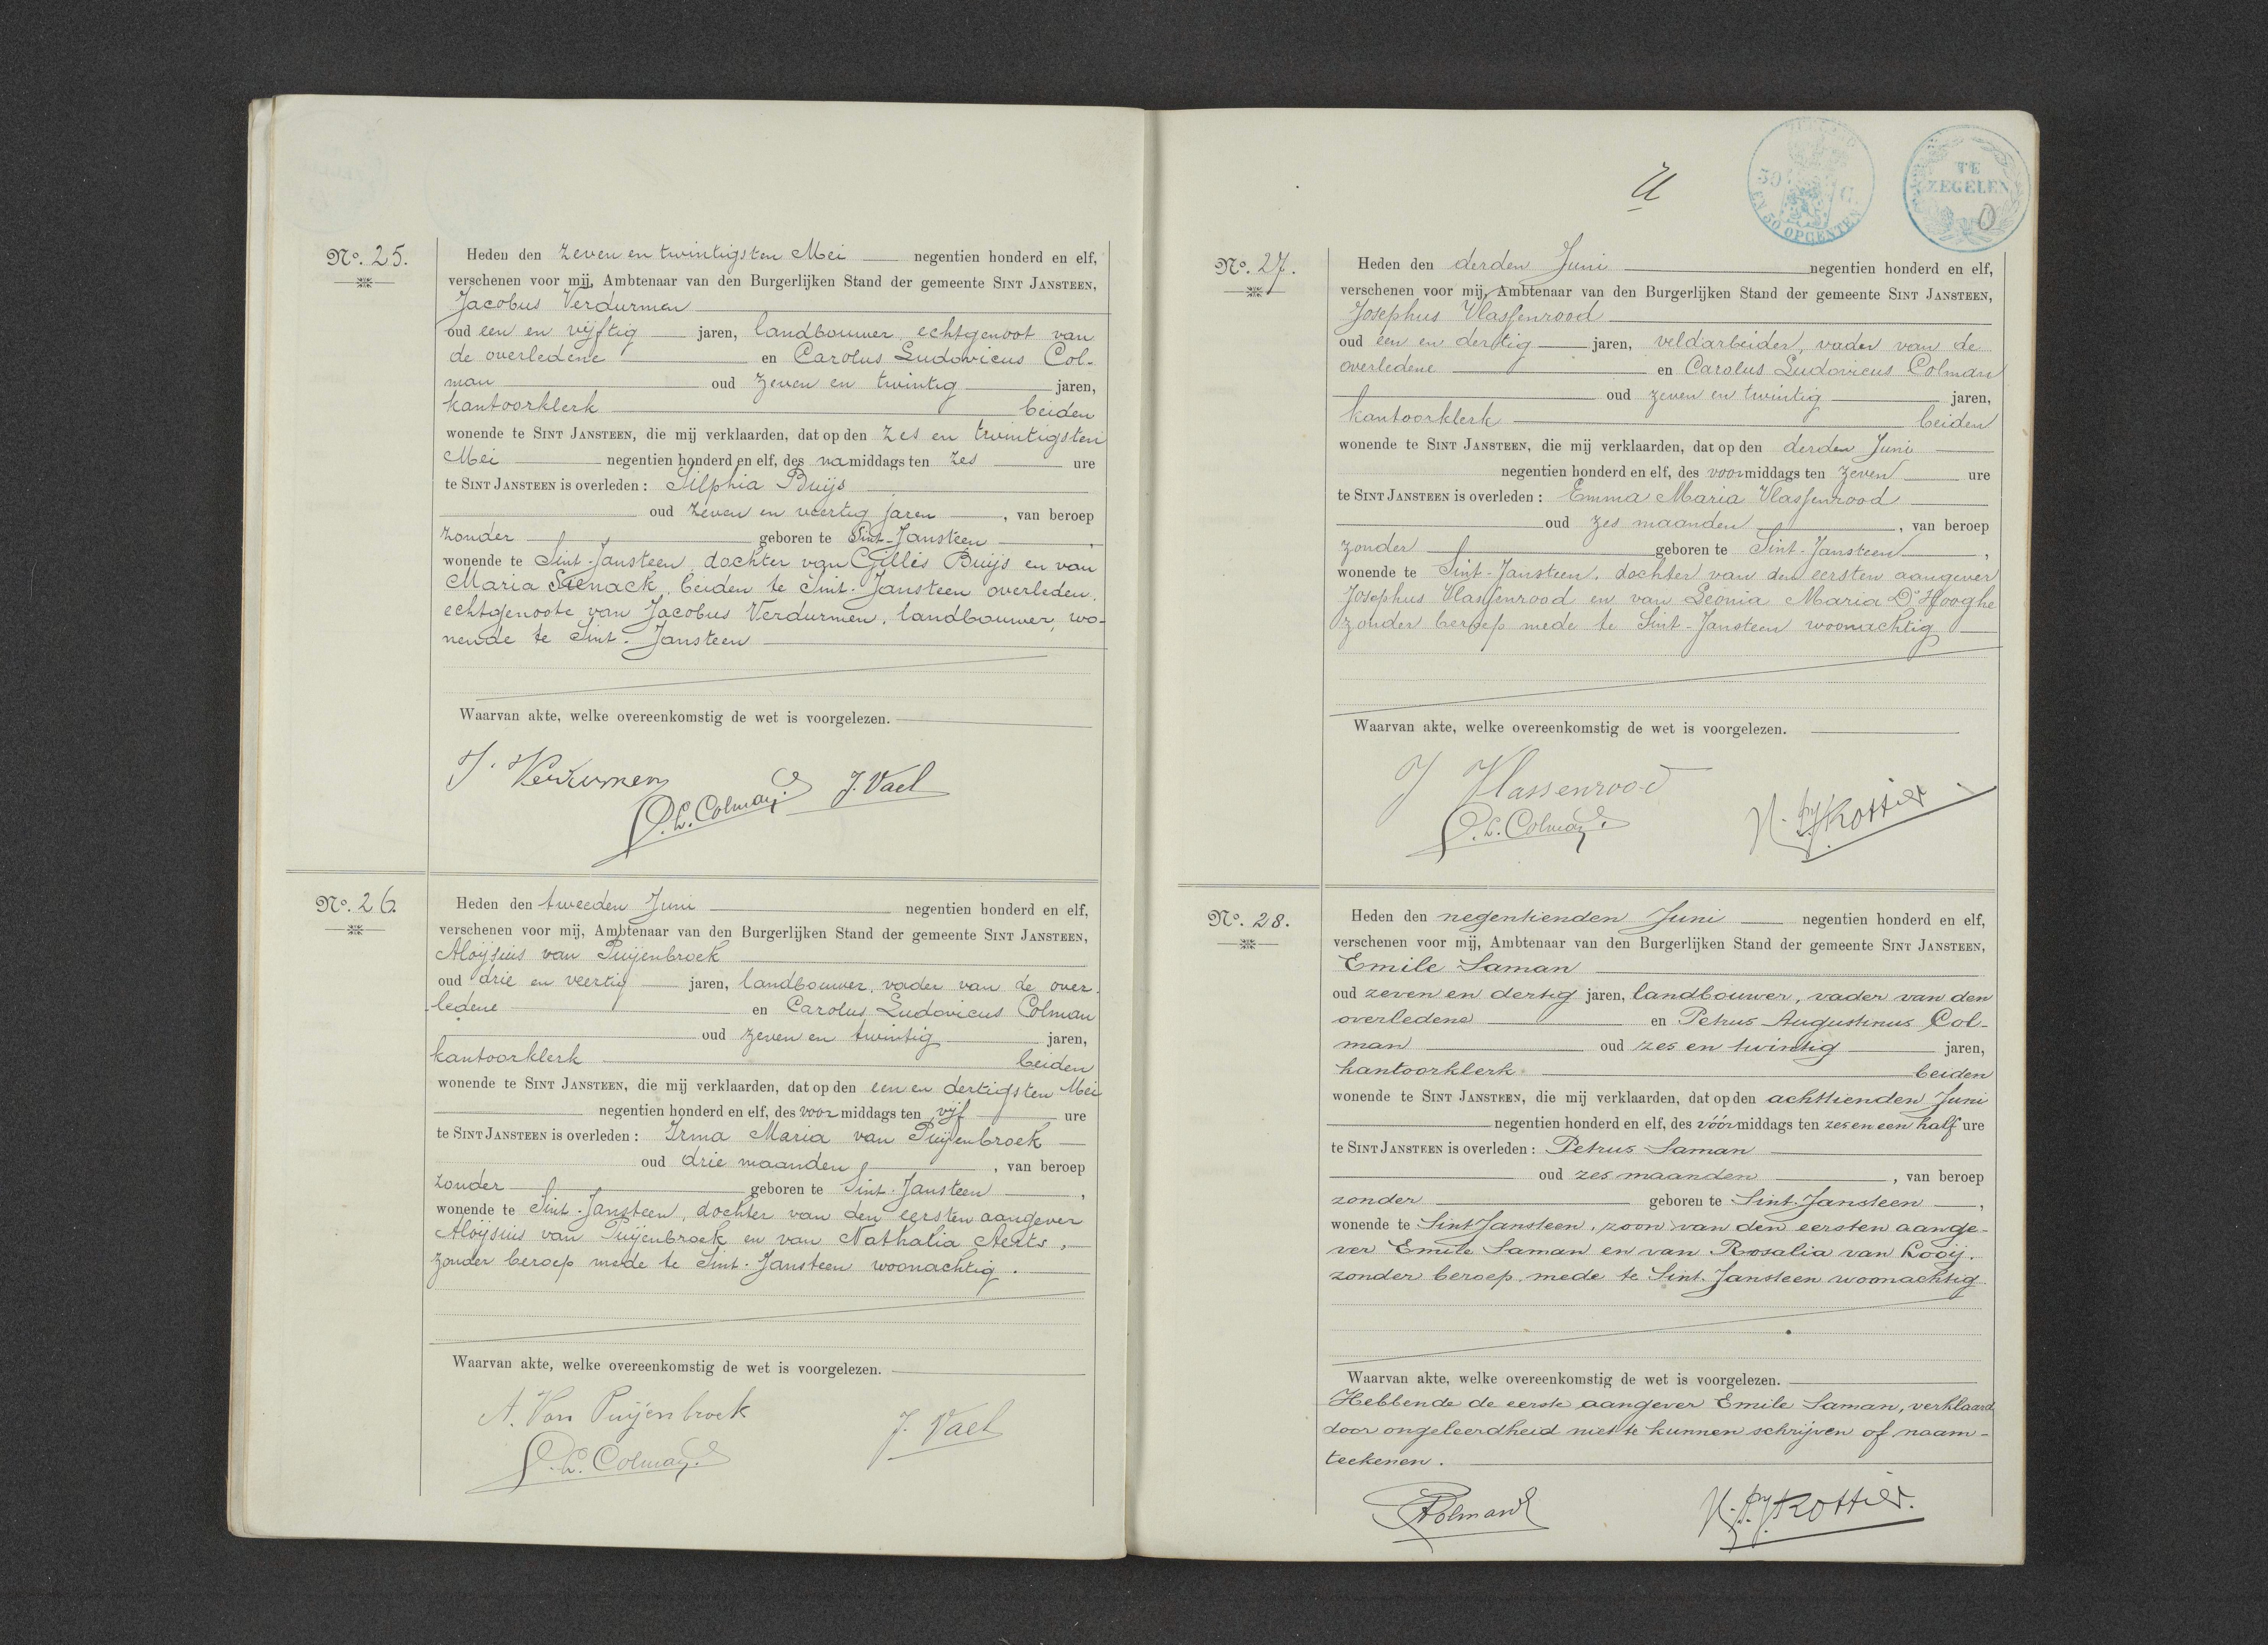 No. 25.
Heden den zeven en twintigsten Mei negentien honderd en elf,
verschenen voor mij, Ambtenaar van den Burgerlijken Stand der gemeente SINT JANSTEEN,
Jacobus Verdurmen
oud een en vijftig jaren, landbouwer, echtgenoot van
de overledene en Carolus Ludovicus Col-
man oud zeven en twintig jaren,
kantoorklerk beiden
wonende te SINT JANSTEEN, die mij verklaarden, dat op den zes en twintigsten
Mei negentien honderd en elf, des namiddags ten zes ure
te SINT JANSTEEN is overleden: Silphia Buijs
oud zeven en veertig jaren, van beroep
zonder geboren te Sint-Jansteen,
wonende te Sint-Jansteen, dochter van Gilles Buijs en van
Maria beiden te Sint-Jansteen overleden,
echtgenoote van Jacobus Verdurmen, landbouwer, wo-
nende te Sint-Jansteen
Waarvan akte, welke overeenkomstig de wet is voorgelezen.
J. Verdurmen
C.L. Colman J. Vael
No. 26.
Heden den tweeden Juni negentien honderd en elf,
verschenen voor mij, Ambtenaar van den Burgerlijken Stand der gemeente SINT JANSTEEN,
Aloijsius van Puijenbroek
oud drie en veertig jaren, landbouwer, vader van de over-
ledene en Carolus Ludovicus Colman
oud zeven en twintig jaren,
kantoorklerk beiden
wonende te SINT JANSTEEN, die mij verklaarden, dat op den een en dertigsten Mei
negentien honderd en elf, des voormiddags ten vijf ure
te SINT JANSTEEN is overleden: Irma Maria van Puijenbroek
oud drie maanden, van beroep
zonder geboren te Sint-Jansteen,
wonende te Sint-Jansteen, dochter van den eersten aangever
Aloijsius van Puijenbroek en van Nathalia Aerts,
zonder beroep mede te Sint-Jansteen woonachtig.
Waarvan akte, welke overeenkomstig de wet is voorgelezen.
A. Van Puijenbroek
C.L. Colman J. Vael
TE
ZEGELEN
0
50 C.
EN 50 OPCENTEN
No. 27.
Heden den derden Juni negentien honderd en elf,
verschenen voor mij, Ambtenaar van den Burgerlijken Stand der gemeente SINT JANSTEEN,
Josephus Vlassenrood
oud een en dertig jaren, veldarbeider, vader van de
overledene en Carolus Ludovicus Colman
oud zeven en twintig jaren,
kantoorklerk beiden
wonende te SINT JANSTEEN, die mij verklaarden, dat op den derden Juni
negentien honderd en elf, des voormiddags ten zeven ure
te SINT JANSTEEN is overleden: Emma Maria Vlassenrood
oud zes maanden, van beroep
zonder geboren te Sint-Jansteen,
wonende te Sint-Jansteen, dochter van den eersten aangever
Josephus Vlassenrood en van Leonia Maria D'Hooghe
zonder beroep mede te Sint-Jansteen woonachtig
Waarvan akte, welke overeenkomstig de wet is voorgelezen.
J Vlassenrood
C.L. Colman Kottier
No. 28.
Heden den negentienden Juni negentien honderd en elf,
verschenen voor mij, Ambtenaar van den Burgerlijken Stand der gemeente SINT JANSTEEN,
Emile Saman
oud zeven en dertig jaren, landbouwer, vader van den
overledene en Petrus Augustinus Col-
man oud zes en twintig jaren,
kantoorklerk beiden
wonende te SINT JANSTEEN, die mij verklaarden, dat op den achttienden Juni
negentien honderd en elf, des vóórmiddags ten zes en een half ure
te SINT JANSTEEN is overleden: Petrus Saman
oud zes maanden, van beroep
zonder geboren te Sint-Jansteen,
wonende te Sint Jansteen, zoon van den eersten aange-
ver Emile Saman en van Rosalia van Looij,
zonder beroep, mede te Sint-Jansteen woonachtig
Waarvan akte, welke overeenkomstig de wet is voorgelezen.
Hebbende de eerste aangever Emile Saman, verklaard
door ongeleerdheid niet te kunnen schrijven of naam-
teekenen.
Colman Kottier.